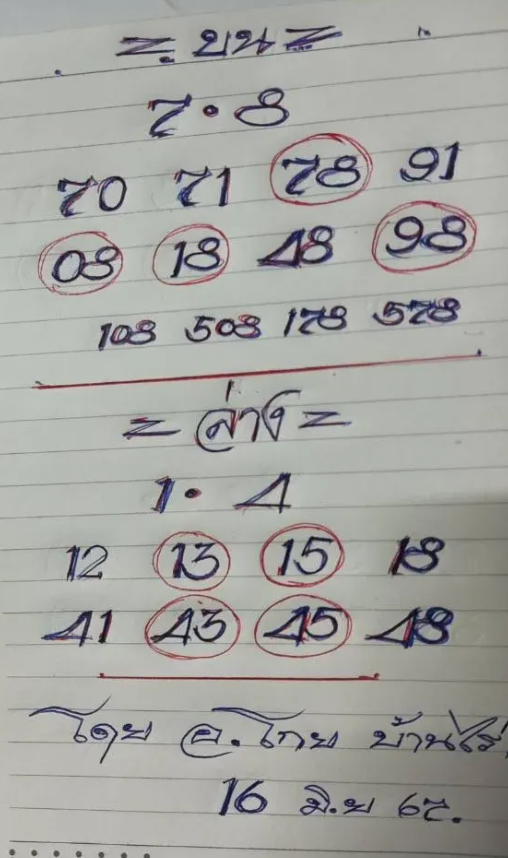 = บน =
7 • 8
70 71 78 91
08 18 48 98
108 508 178 578
= ล่าง =
1 • 4
12 13 15 18
41 43 45 48
โดย อ.โกย บ้านไร่
16 มิ.ย 67.